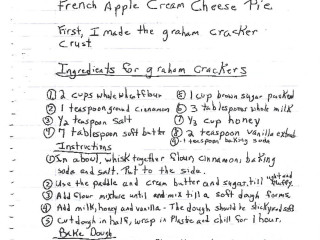 French Apple Cream Cheese Pie.
First, I made the graham cracker
crust
Ingredients for graham crackers
① 2 cups wholewheatflour
② 1 teaspoon ground cinnamon
③ 1/2 teaspoon salt
④ 7 tablespoon soft butter
⑤ 1 cup brown sugar packed
⑥ 3 tablespoons whole milk
⑦ 1/3 cup honey
⑧ 2 teaspoon vanilla extract
⑨ 1 teaspoon baking soda
Instructions
① In a bowl, whisk together flour, cinnamon, baking
soda and salt. Put to the side.
② Use the paddle and cream butter and sugar, till light and fluffy.
③ Add flour mixture until and mix till a soft dough forms
④ Add milk, honey and vanilla - The dough should be sticky and soft
⑤ Cut dough in half, wrap in plastic and chill for 1 hour.
Bake Dough